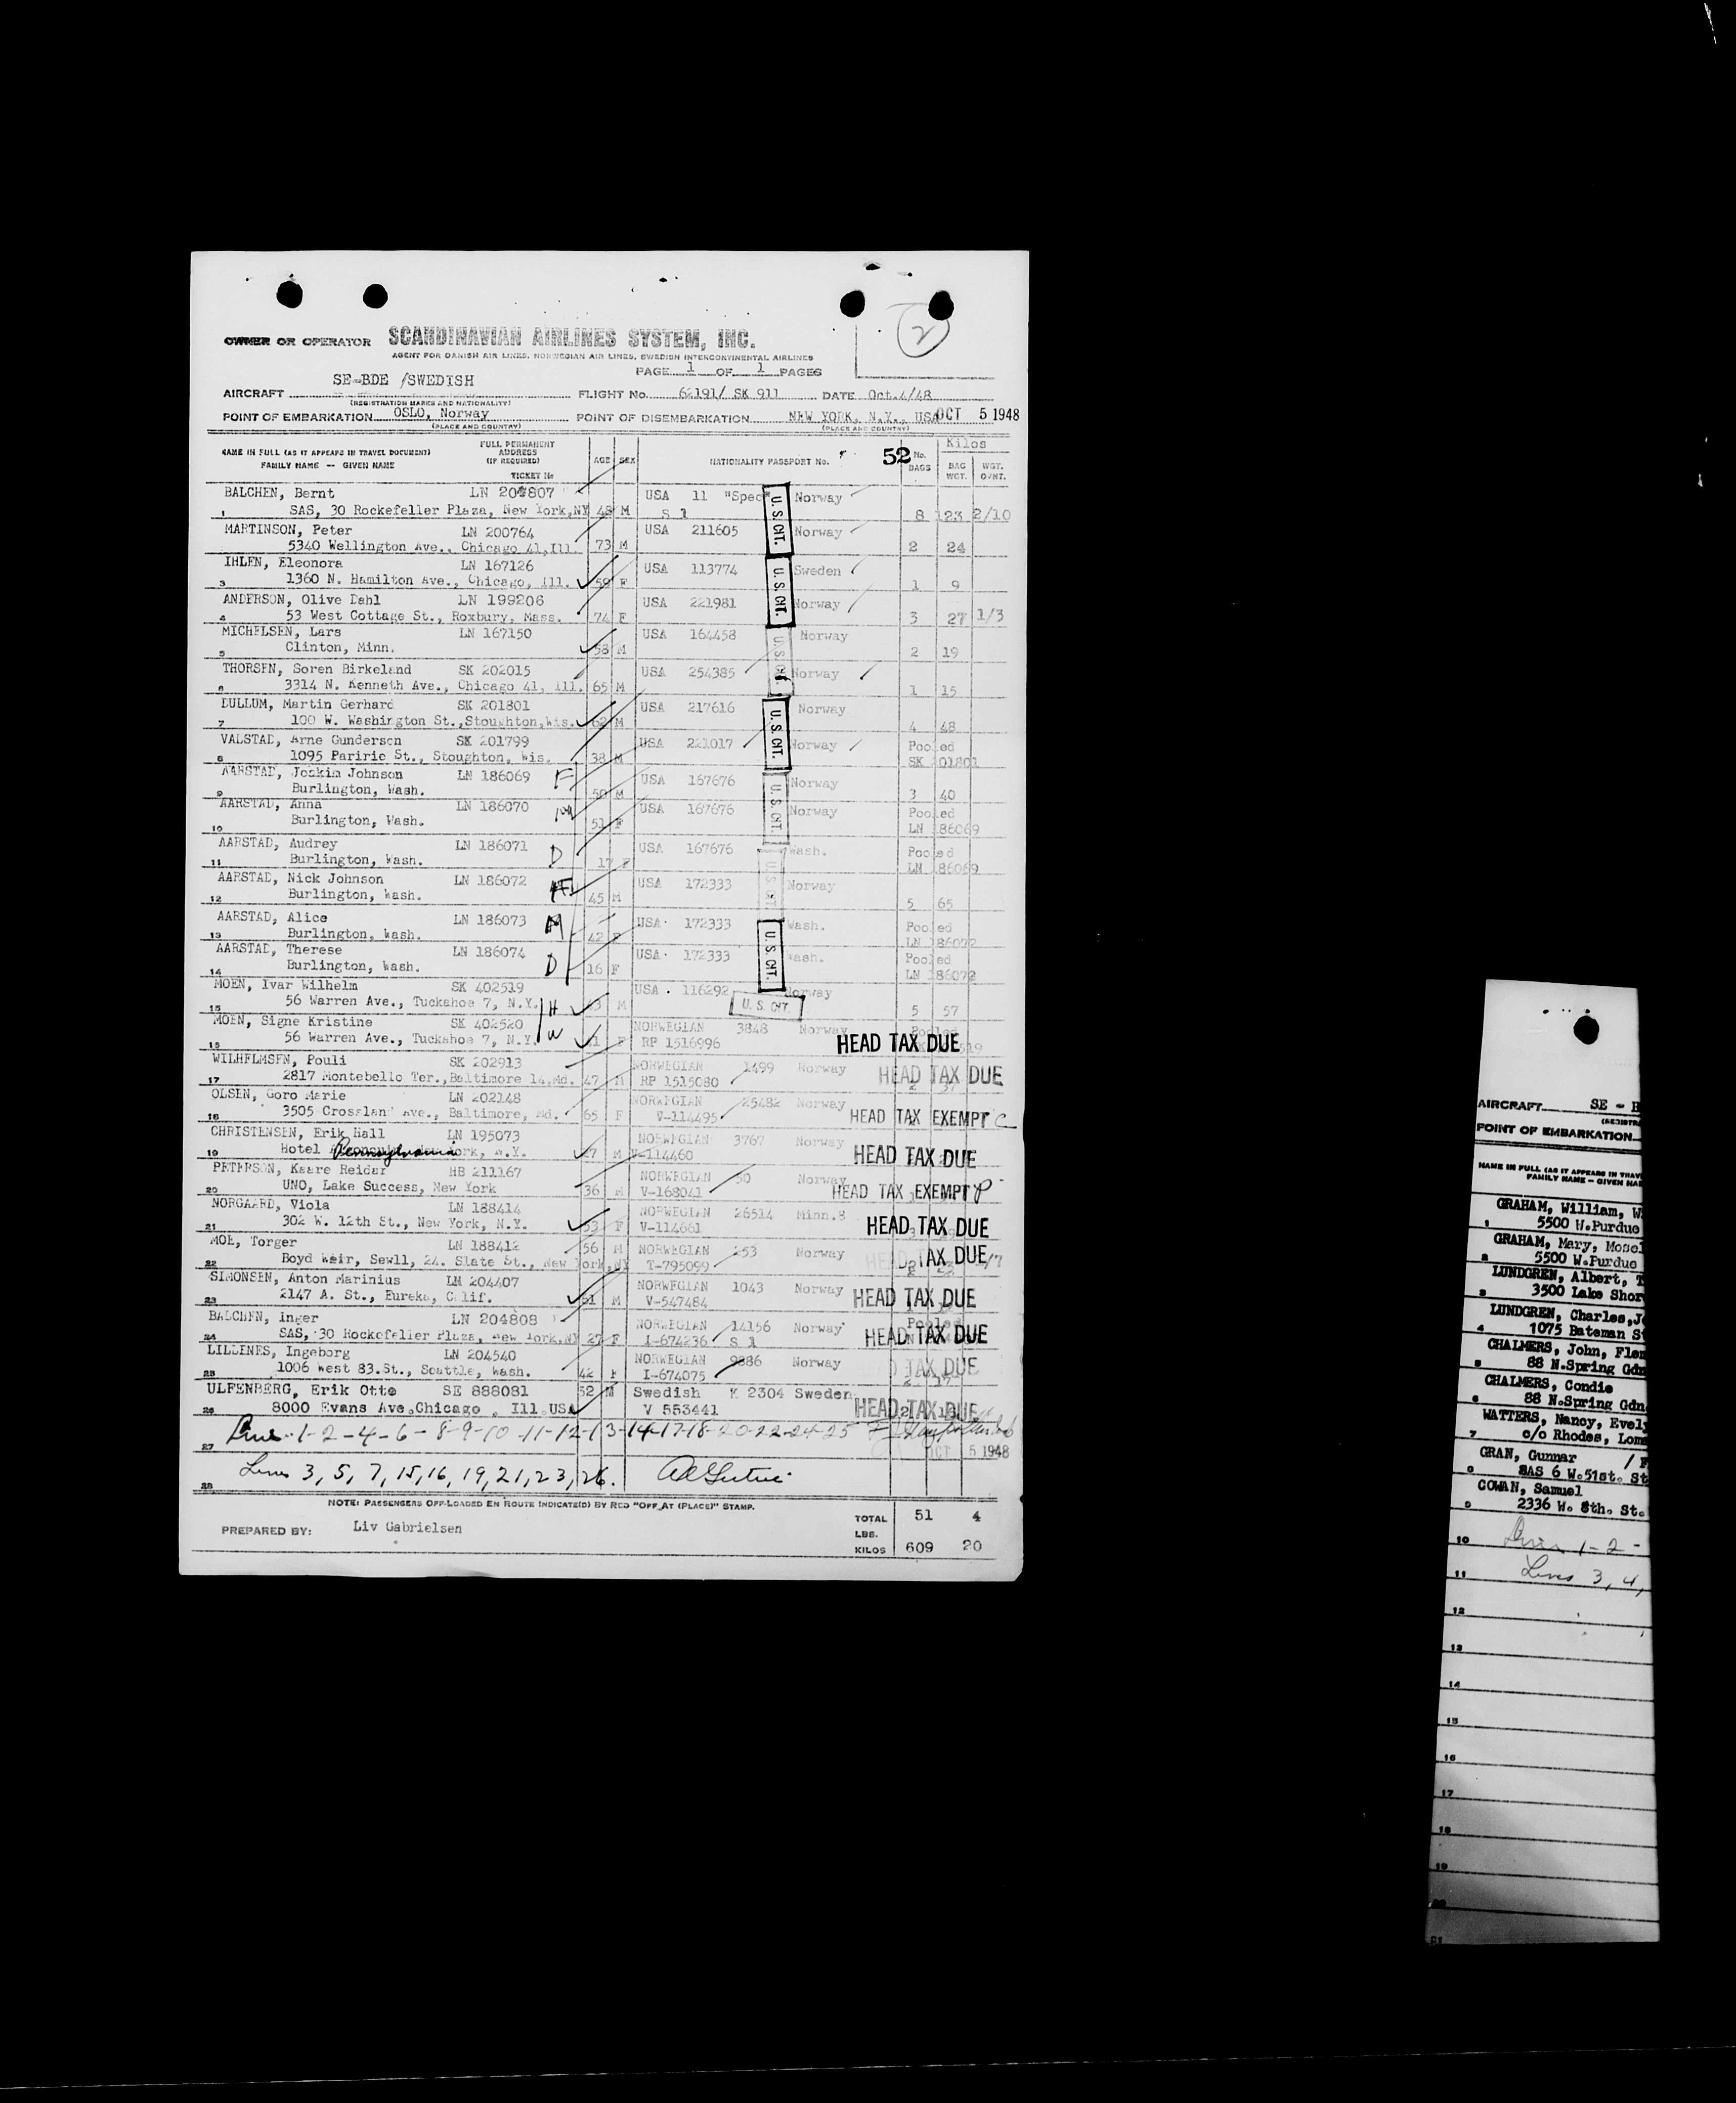 2
OWNER OR OPERATOR SCANDINAVIAN AIRLINES SYSTEM, INC.
AGENT FOR DANISH AIR LINES, NORWEGIAN AIR LINES, SWEDISH INTERCONTINENTAL AIRLINES
PAGE 1 OF 1 PAGES
AIRCRAFT SE-BDE /SWEDISH FLIGHT No. 62191/ SK 911 DATE Oct.4/48
(REGISTRATION MARKS AND NATIONALITY)
POINT OF EMBARKATION OSLO, Norway POINT OF DISEMBARKATION NEW YORK, N.Y., USA OCT 5 1948
(PLACE AND COUNTRY) (PLACE AND COUNTRY)
NAME IN FULL (AS IT APPEARS IN TRAVEL DOCUMENT) FAMILY NAME — GIVEN NAME FULL PERMANENT ADDRESS (IF REQUIRED) TICKET No AGE SEX NATIONALITY PASSPORT No. 52 No. BAGS Kilos BAG WGT. WGT.
BALCHEN, Bernt LN 204807 USA 11 "Spec" Norway
1 SAS, 30 Rockefeller Plaza, New York,NY 48 M S 1 U.S. CIT. 8 123 2/10
MARTINSON, Peter LN 200764 USA 211605 Norway
5340 Wellington Ave., Chicago 41,Ill. 73 M 2 24
IHLEN, Eleonora LN 167126 USA 113774 Sweden
3 1360 N. Hamilton Ave., Chicago, Ill. 59 F U.S. CIT. 1 9
ANDERSON, Olive Dahl LN 199206 USA 221981 Norway
4 53 West Cottage St., Roxbury, Mass. 74 F 3 27 1/3
MICHELSEN, Lars LN 167150 USA 164458 Norway
5 Clinton, Minn. 58 M U.S. CIT. 2 19
THORSEN, Soren Birkeland SK 202015 USA 254385 Norway
6 3314 N. Kenneth Ave., Chicago 41, Ill. 65 M 1 15
DULLUM, Martin Gerhard SK 201801 USA 217616 Norway
7 100 W. Washington St.,Stoughton,Wis. 62 M U.S. CIT. 4 48
VALSTAD, Arne Gunderson SK 201799 USA 221017 Norway Pooled
8 1095 Paririe St., Stoughton, Wis. 38 M SK 201801
AARSTAD, Joakim Johnson LN 186069 F USA 167676 Norway
9 Burlington, Wash. 50 M U.S. CIT. 3 40
AARSTAD, Anna LN 186070 M USA 167676 Norway Pooled
10 Burlington, Wash. 51 F LN 186069
AARSTAD, Audrey LN 186071 D USA 167676 Wash. Pooled
11 Burlington, Wash. 17 F U.S. CIT. LN 186069
AARSTAD, Nick Johnson LN 186072 F USA 172333 Norway
12 Burlington, Wash. 45 M 5 65
AARSTAD, Alice LN 186073 M USA 172333 Wash. Pooled
13 Burlington, Wash. 42 F U.S. CIT. LN 186072
AARSTAD, Therese LN 186074 D USA 172333 Wash. Pooled
14 Burlington, Wash. 16 F LN 186072
MOEN, Ivar Wilhelm SK 402519 USA 116292 Norway
15 56 Warren Ave., Tuckahoe 7, N.Y. H 43 M U. S. CIT. 5 57
MOEN, Signe Kristine SK 402520 NORWEGIAN 3848 Norway Pooled
56 Warren Ave., Tuckahoe 7, N.Y. W 41 F RP 1516996 HEAD TAX DUE
WILHELMSEN, Pouli SK 202913 NORWEGIAN 1499 Norway
17 2817 Montebello Ter.,Baltimore 14,Md. 47 M RP 1515080 HEAD TAX DUE
OLSEN, Goro Marie LN 202148 NORWEGIAN 25482 Norway
3505 Crossland Ave., Baltimore, Md. 65 F V-114495 HEAD TAX EXEMPT C
CHRISTENSEN, Erik Hall LN 195073 NORWEGIAN 3767 Norway
19 Hotel Pennsylvania York, N.Y. 27 M V-114460 HEAD TAX DUE
PETERSON, Kaare Reidar HB 211167 NORWEGIAN 50 Norway
20 UNO, Lake Success, New York 36 M V-168041 HEAD TAX EXEMPT P
NORGAARD, Viola LN 188414 NORWEGIAN 26514 Minn.8
21 302 W. 12th St., New York, N.Y. 53 F V-114661 HEAD TAX DUE
MOE, Torger LN 188412 56 M NORWEGIAN 253 Norway
22 Boyd Weir, Sewll, 24. Slate St., New York,NY T-795099 HEAD TAX DUE
SIMONSEN, Anton Marinius LN 204407 NORWEGIAN 1043 Norway
23 2147 A. St., Eureka, Calif. 51 M V-547484 HEAD TAX DUE
BALCHEN, Inger LN 204808 NORWEGIAN 14156 Norway Pooled
24 SAS, 30 Rockefeller Plaza, New York,NY 27 F I-674236 S 1 HEAD TAX DUE
LILLENES, Ingeborg LN 204540 NORWEGIAN 9886 Norway
25 1006 West 83.St., Seattle, Wash. 42 F I-674075 TAX DUE
ULFENBERG, Erik Otto SE 888081 52 M Swedish K 2304 Sweden
26 8000 Evans Ave.Chicago , Ill.USA V 553441 HEAD TAX DUE
27 Lines 1-2-4-6-8-9-10-11-12-13-14-17-18-20-22-24-25 OCT 5 1948
28 Lines 3, 5, 7, 15, 16, 19, 21, 23, 26.
NOTE: PASSENGERS OFF-LOADED EN ROUTE INDICATE(D) BY RED "OFF AT (PLACE)" STAMP.
PREPARED BY: Liv Gabrielsen
TOTAL 51 4
LBS.
KILOS 609 20
AIRCRAFT SE - B
POINT OF EMBARKATION
NAME IN FULL (AS IT APPEARS IN TRAV
FAMILY NAME — GIVEN NA
GRAHAM, William, W
1 5500 W.Purdue
GRAHAM, Mary, Mosel
2 5500 W.Purdue
LUNDGREN, Albert, T
3 3500 Lake Shor
LUNDGREN, Charles,J
4 1075 Bateman S
CHALMERS, John, Flem
5 88 N.Spring Gdn
CHALMERS, Condie
6 88 N.Spring Gdn
WATTERS, Nancy, Evely
7 c/o Rhodes, Lom
GRAN, Gunnar
8 SAS 6 W.51st. St
COWAN, Samuel
9 2336 W. 8th. St.
10 Lines 1-2-
11 Lines 3, 4,
12
13
14
15
16
17
18
19
20
21